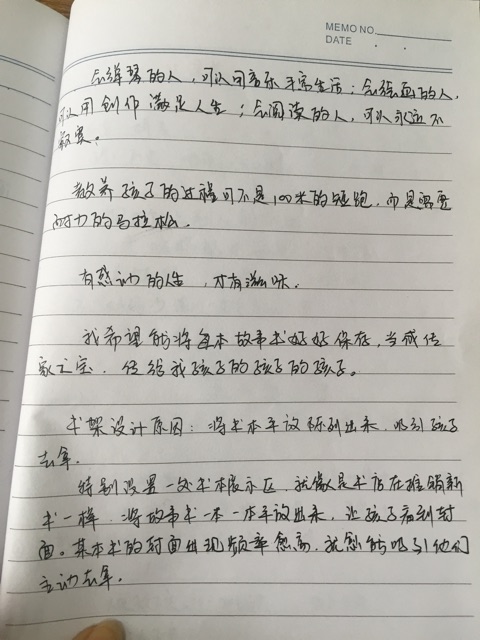 MEMO NO.
DATE . .
会弹琴的人，可以用音乐丰富生活；会绘画的人，
可以用创作满足人生；会阅读的人，可以永远不
寂寞。
教养孩子的过程可不是100米的短跑，而是需要
耐力的马拉松。
有感动的人生，才有滋味。
我希望能将每本故事书好好保存，当成传
家之宝，传给我孩子的孩子的孩子。
书架设计原因：将书本平放陈列出来，吸引孩子
去拿。
特别设置一处书本展示区，就像是书店在推销新
书一样，将故事书一本一本平放出来，让孩子看到封
面。某本书的封面出现频率愈高，就愈能吸引他们
主动去拿。